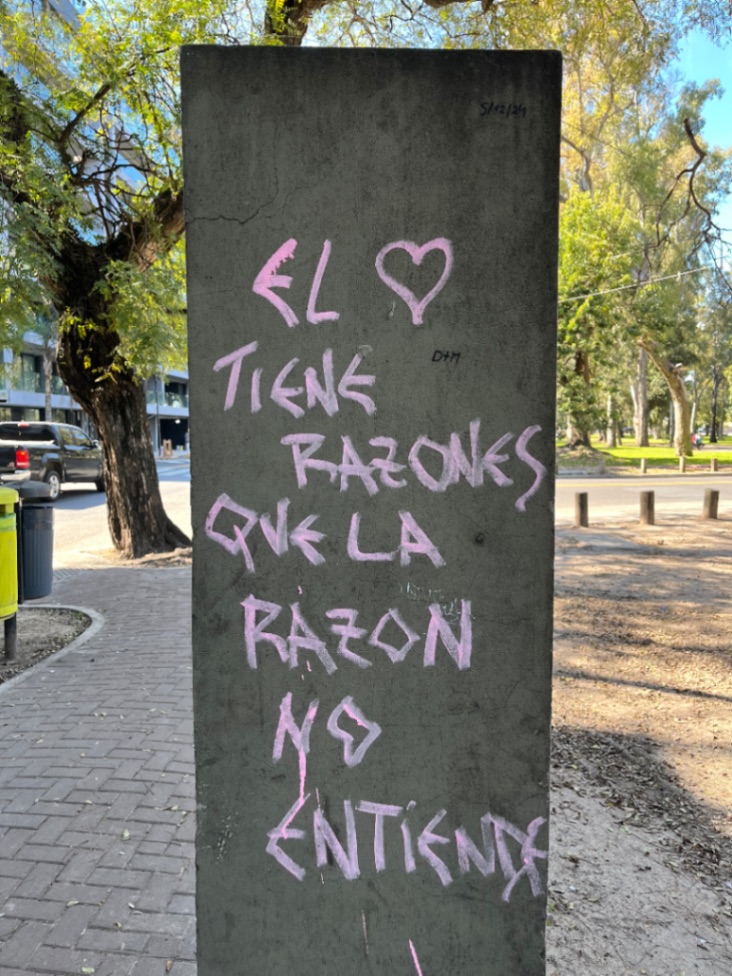 5/12/24
EL ♡
TIENE
D+M
RAZONES
QUE LA
RAZON
NO
ENTIENDE